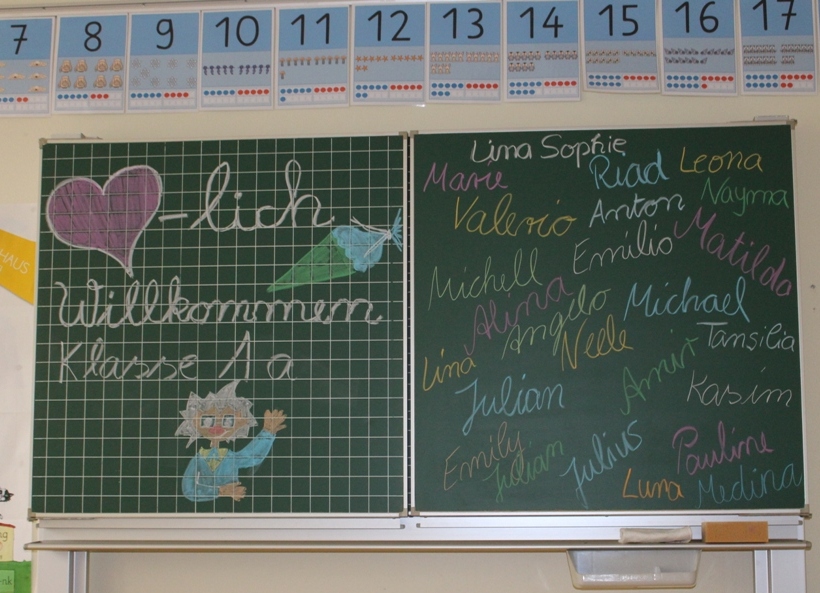 7 8 9 10 11 12 13 14 15 16 17
-lich
Willkommen
Klasse 1a
HAUS
Lina Sophie
Marie Riad Leona
Valerio Anton Nayma
Emilio Matilda
Michell
Alina Angelo Michael
Lina Neele Tansilia
Julian Amirt Kasim
Emily Julian Julius Pauline
Luna Medina